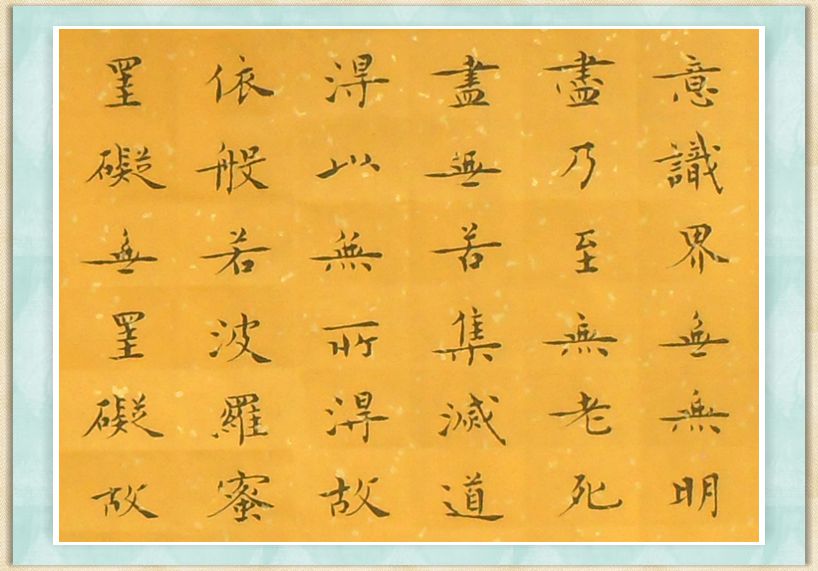 意識界無無明
盡乃至無老死
盡無苦集滅道
得以無所得故
依般若波羅蜜
罣礙無罣礙故